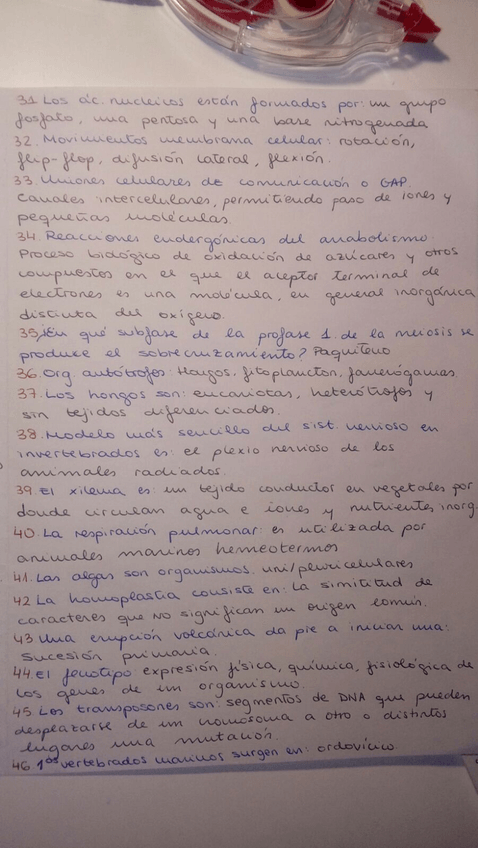 31 Los ác. nucleicos están formados por: un grupo
fosfato, una pentosa y una base nitrogenada
32. Movimientos membrana celular: rotación,
flip-flop, difusión lateral, flexión.
33. Uniones celulares de comunicación o GAP.
Canales intercelulares, permitiendo paso de iones y
pequeñas moléculas.
34. Reacciones endergónicas del anabolismo.
Proceso biológico de oxidación de azúcares y otros
compuestos en el que el aceptor terminal de
electrones es una molécula, en general inorgánica
distinta del oxígeno.
35. ¿En qué subfase de la profase 1. de la meiosis se
produce el sobrecruzamiento? Paquiteno
36. Org. autótrofos: Hongos, fitoplancton, fanerógamas.
37. Los hongos son: eucariotas, heterótrofos y
sin tejidos diferenciados.
38. Modelo más sencillo del sist. nervioso en
invertebrados es: el plexio nervioso de los
animales radiados.
39. El xilema es: un tejido conductor en vegetales por
donde circulan agua e iones y nutrientes inorg.
40. La respiración pulmonar: es utilizada por
animales marinos homeotermos
41. Las algas son organismos. uni/pluricelulares
42 La homoplastia consiste en: La similitud de
caracteres que no significan un origen común.
43 Una erupción volcánica da pie a iniciar una:
Sucesión primaria.
44. El fenotipo expresión física, química, fisiológica de
los genes de un organismo.
45 Los transposones son: segmentos de DNA que pueden
desplazarse de un cromosoma a otro o distintos
lugares una mutación.
46 1os vertebrados marinos surgen en: ordovícico